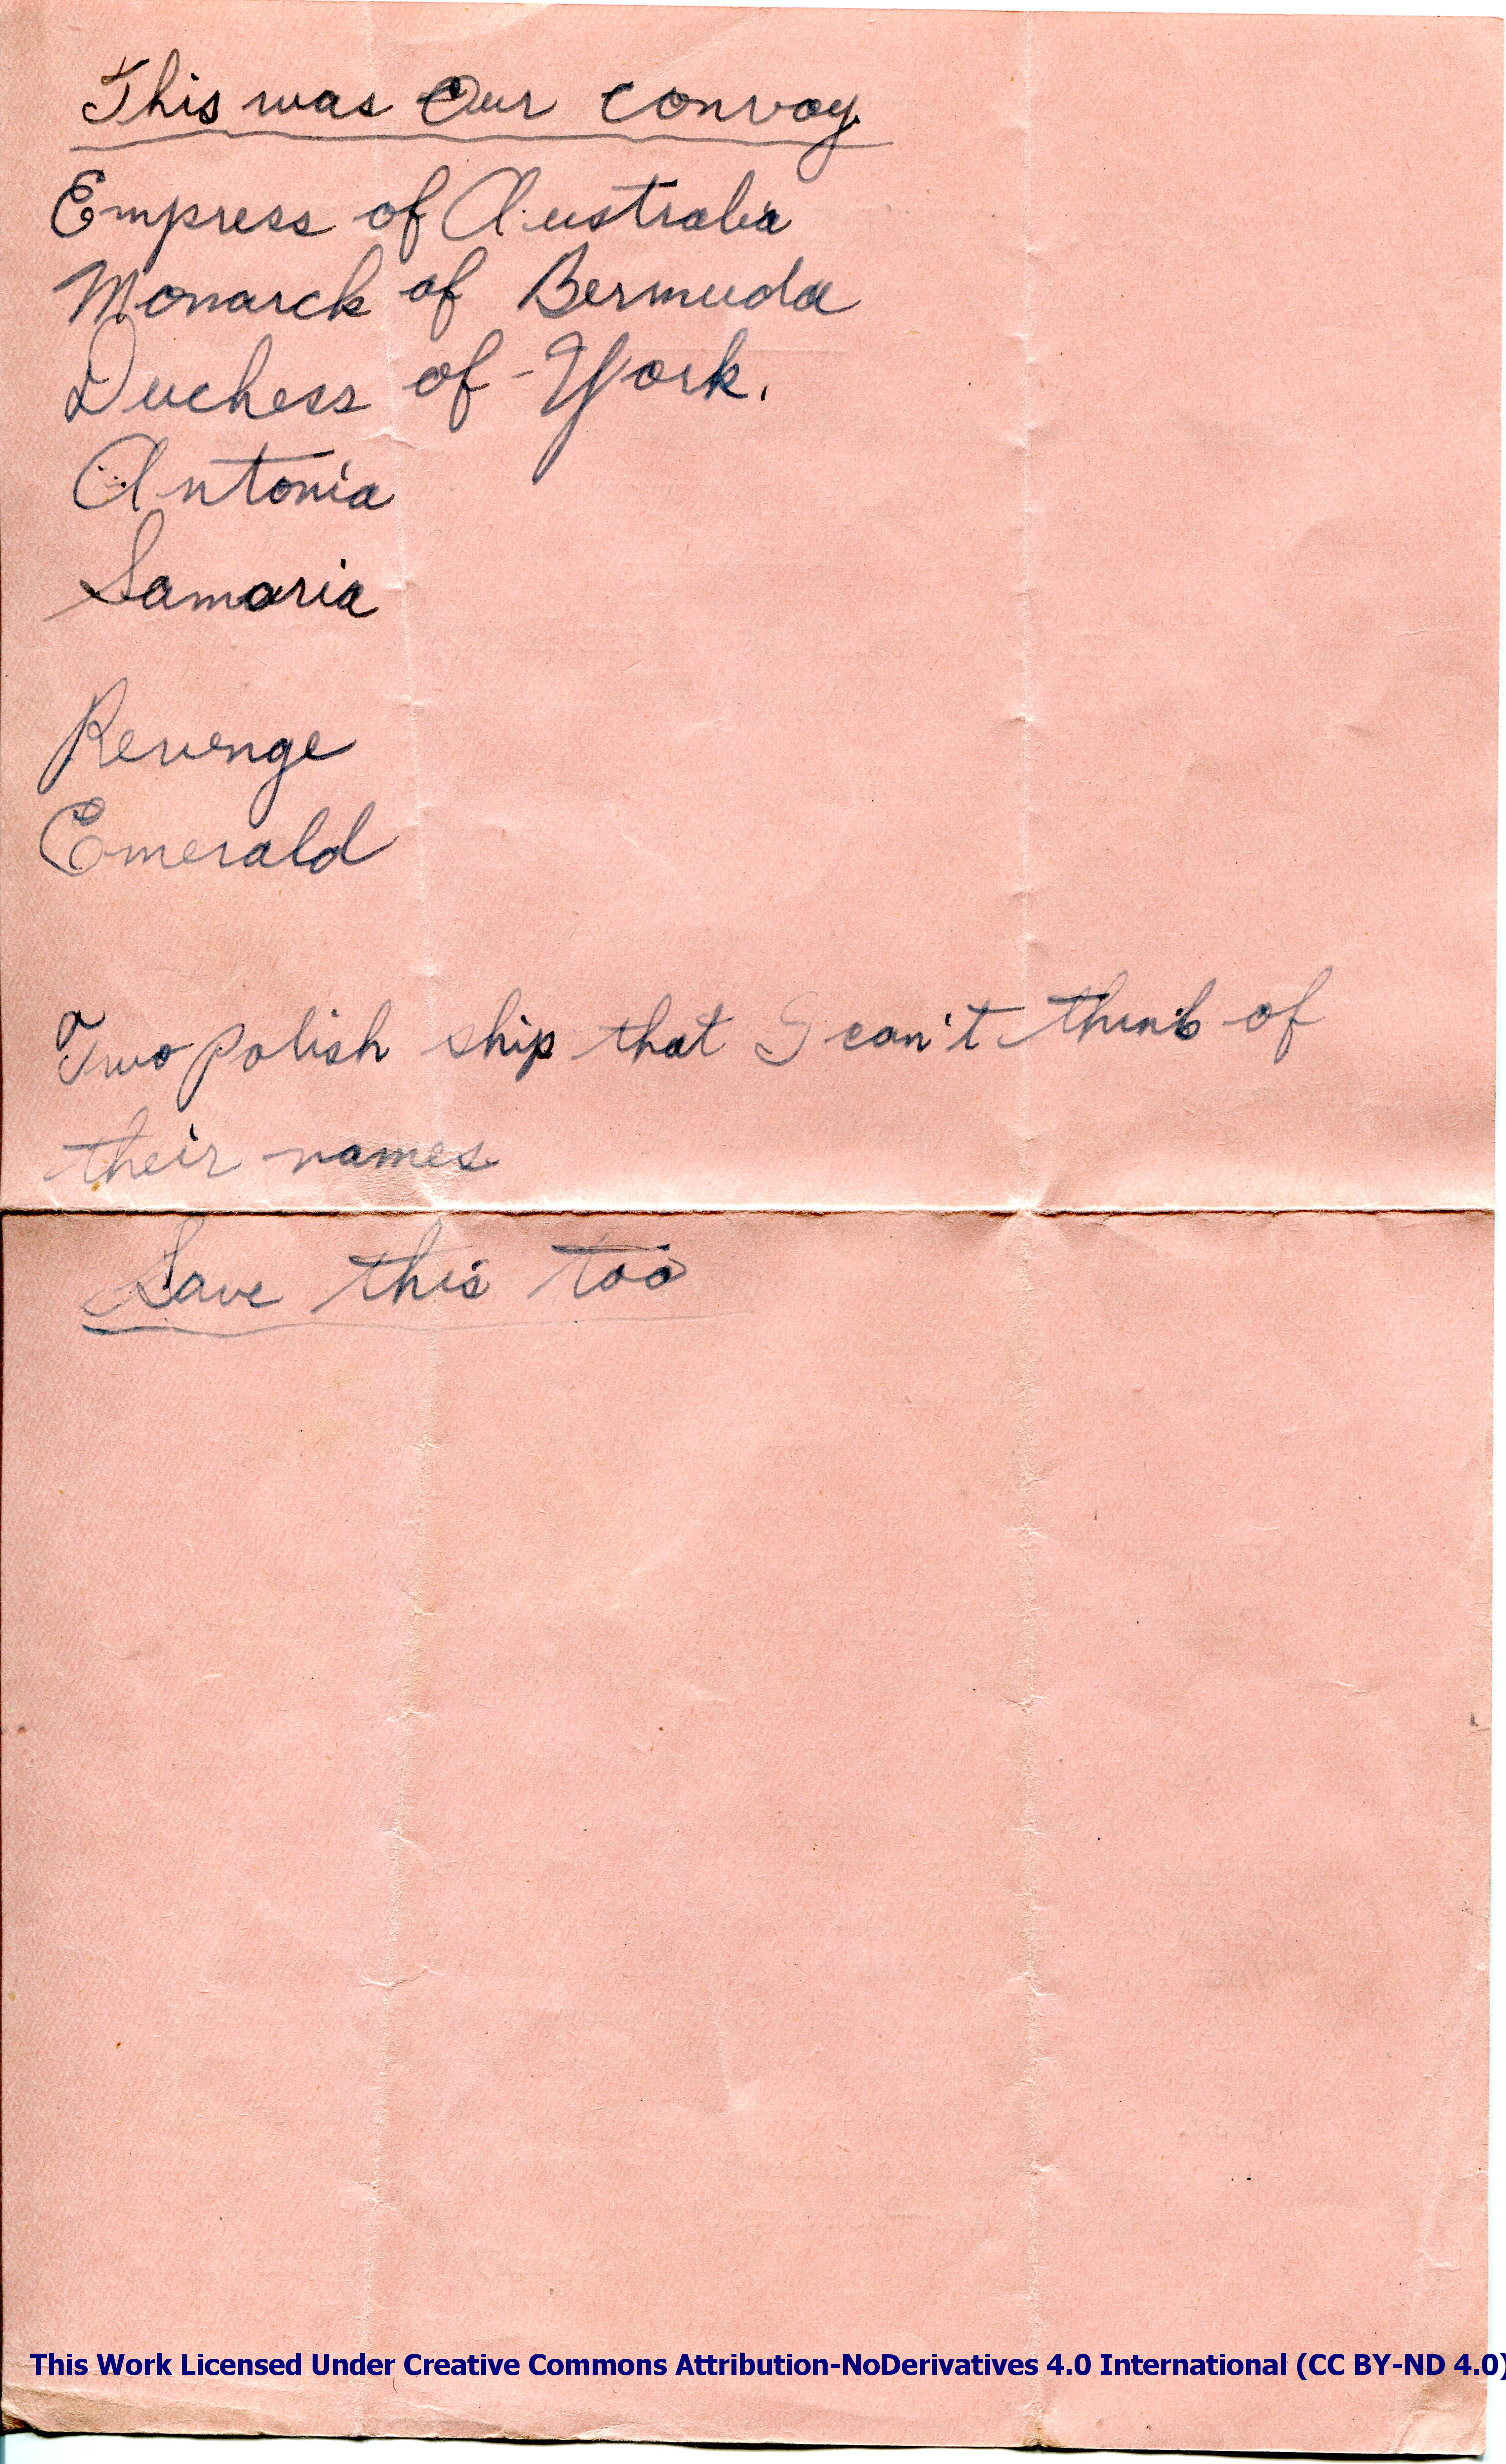 This was Our convoy
Empress of Australia
Monarck of Bermuda
Duchess of York.
Antonia
Samaria
Revenge
Emerald
Two polish ship that I can't think of
their names
Save this too
This Work Licensed Under Creative Commons Attribution-NoDerivatives 4.0 International (CC BY-ND 4.0)